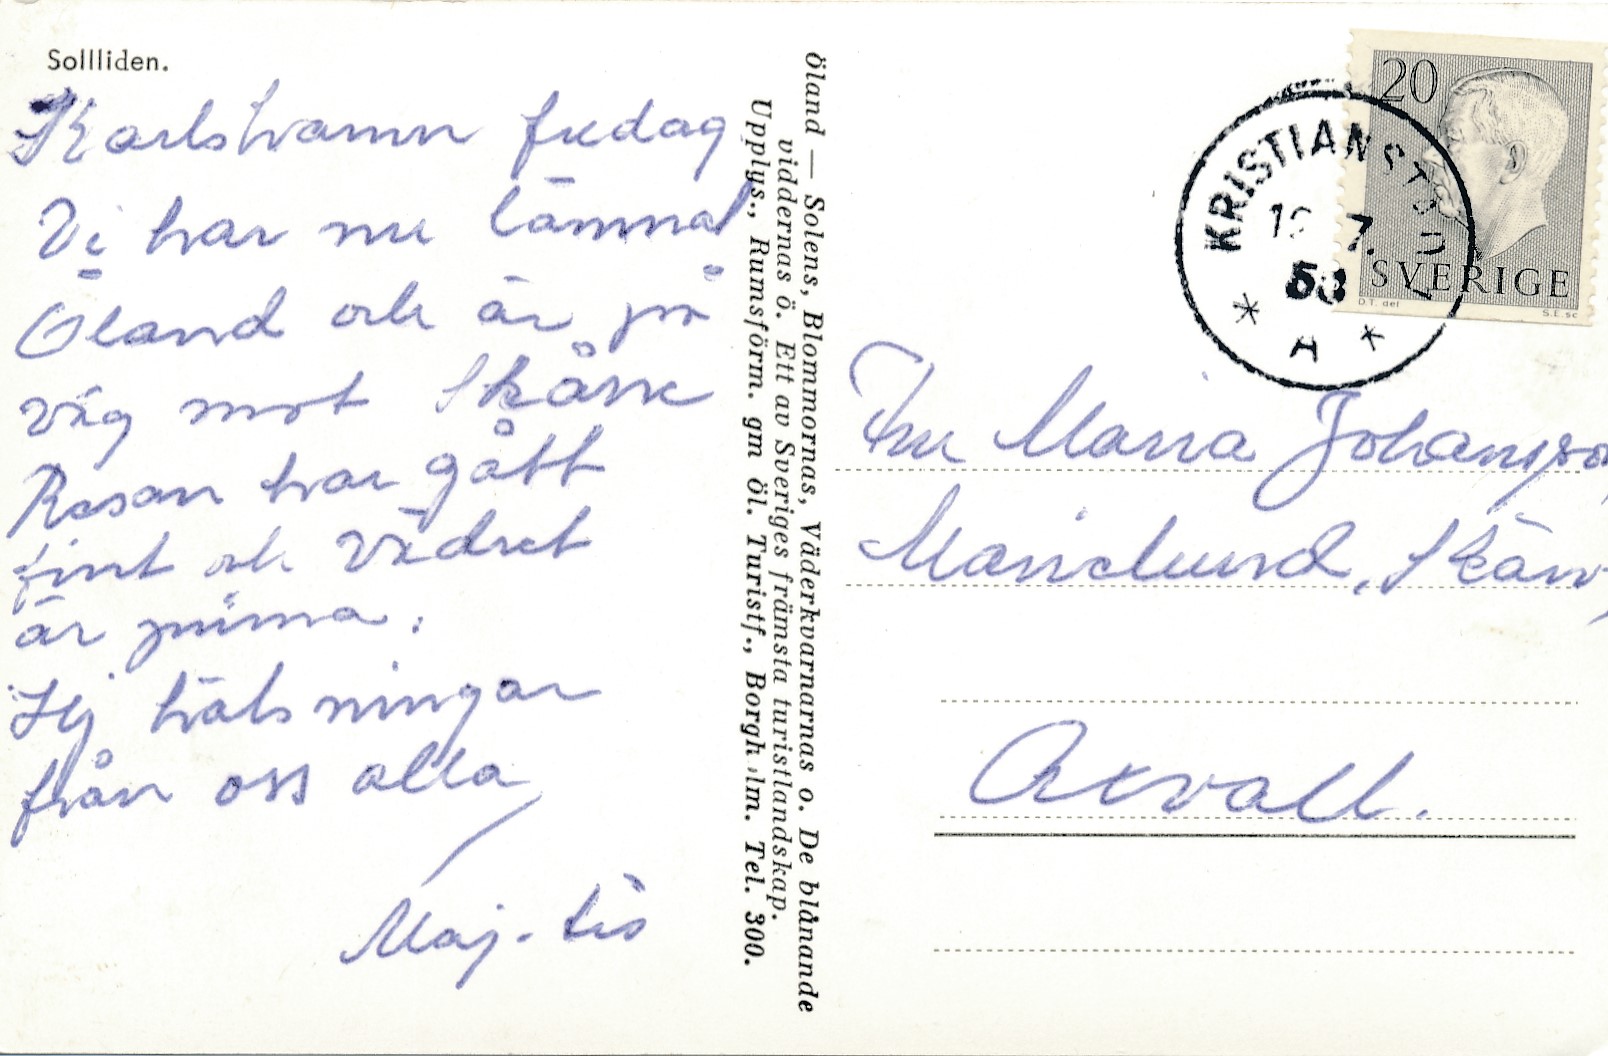 Sollliden.
Karlshamn fredag
Vi har nu lämnat
Öland och är på
väg mot Skåne
Resan har gått
fint och vädret
är prima.
Hej hälsningar
från oss alla
Maj-Lis
Öland — Solens, Blommornas, Väderkvarnarnas o. De blånande
viddernas ö. Ett av Sveriges främsta turistlandskap.
Upplys., Rumsförm. gm öl. Turistf., Borgholm. Tel. 300.
20
SVERIGE
D.T. del
S.E. sc
KRISTIANSTAD
7.
A
Fru Maria Johansson
Marielund, Skärv
Axvall.